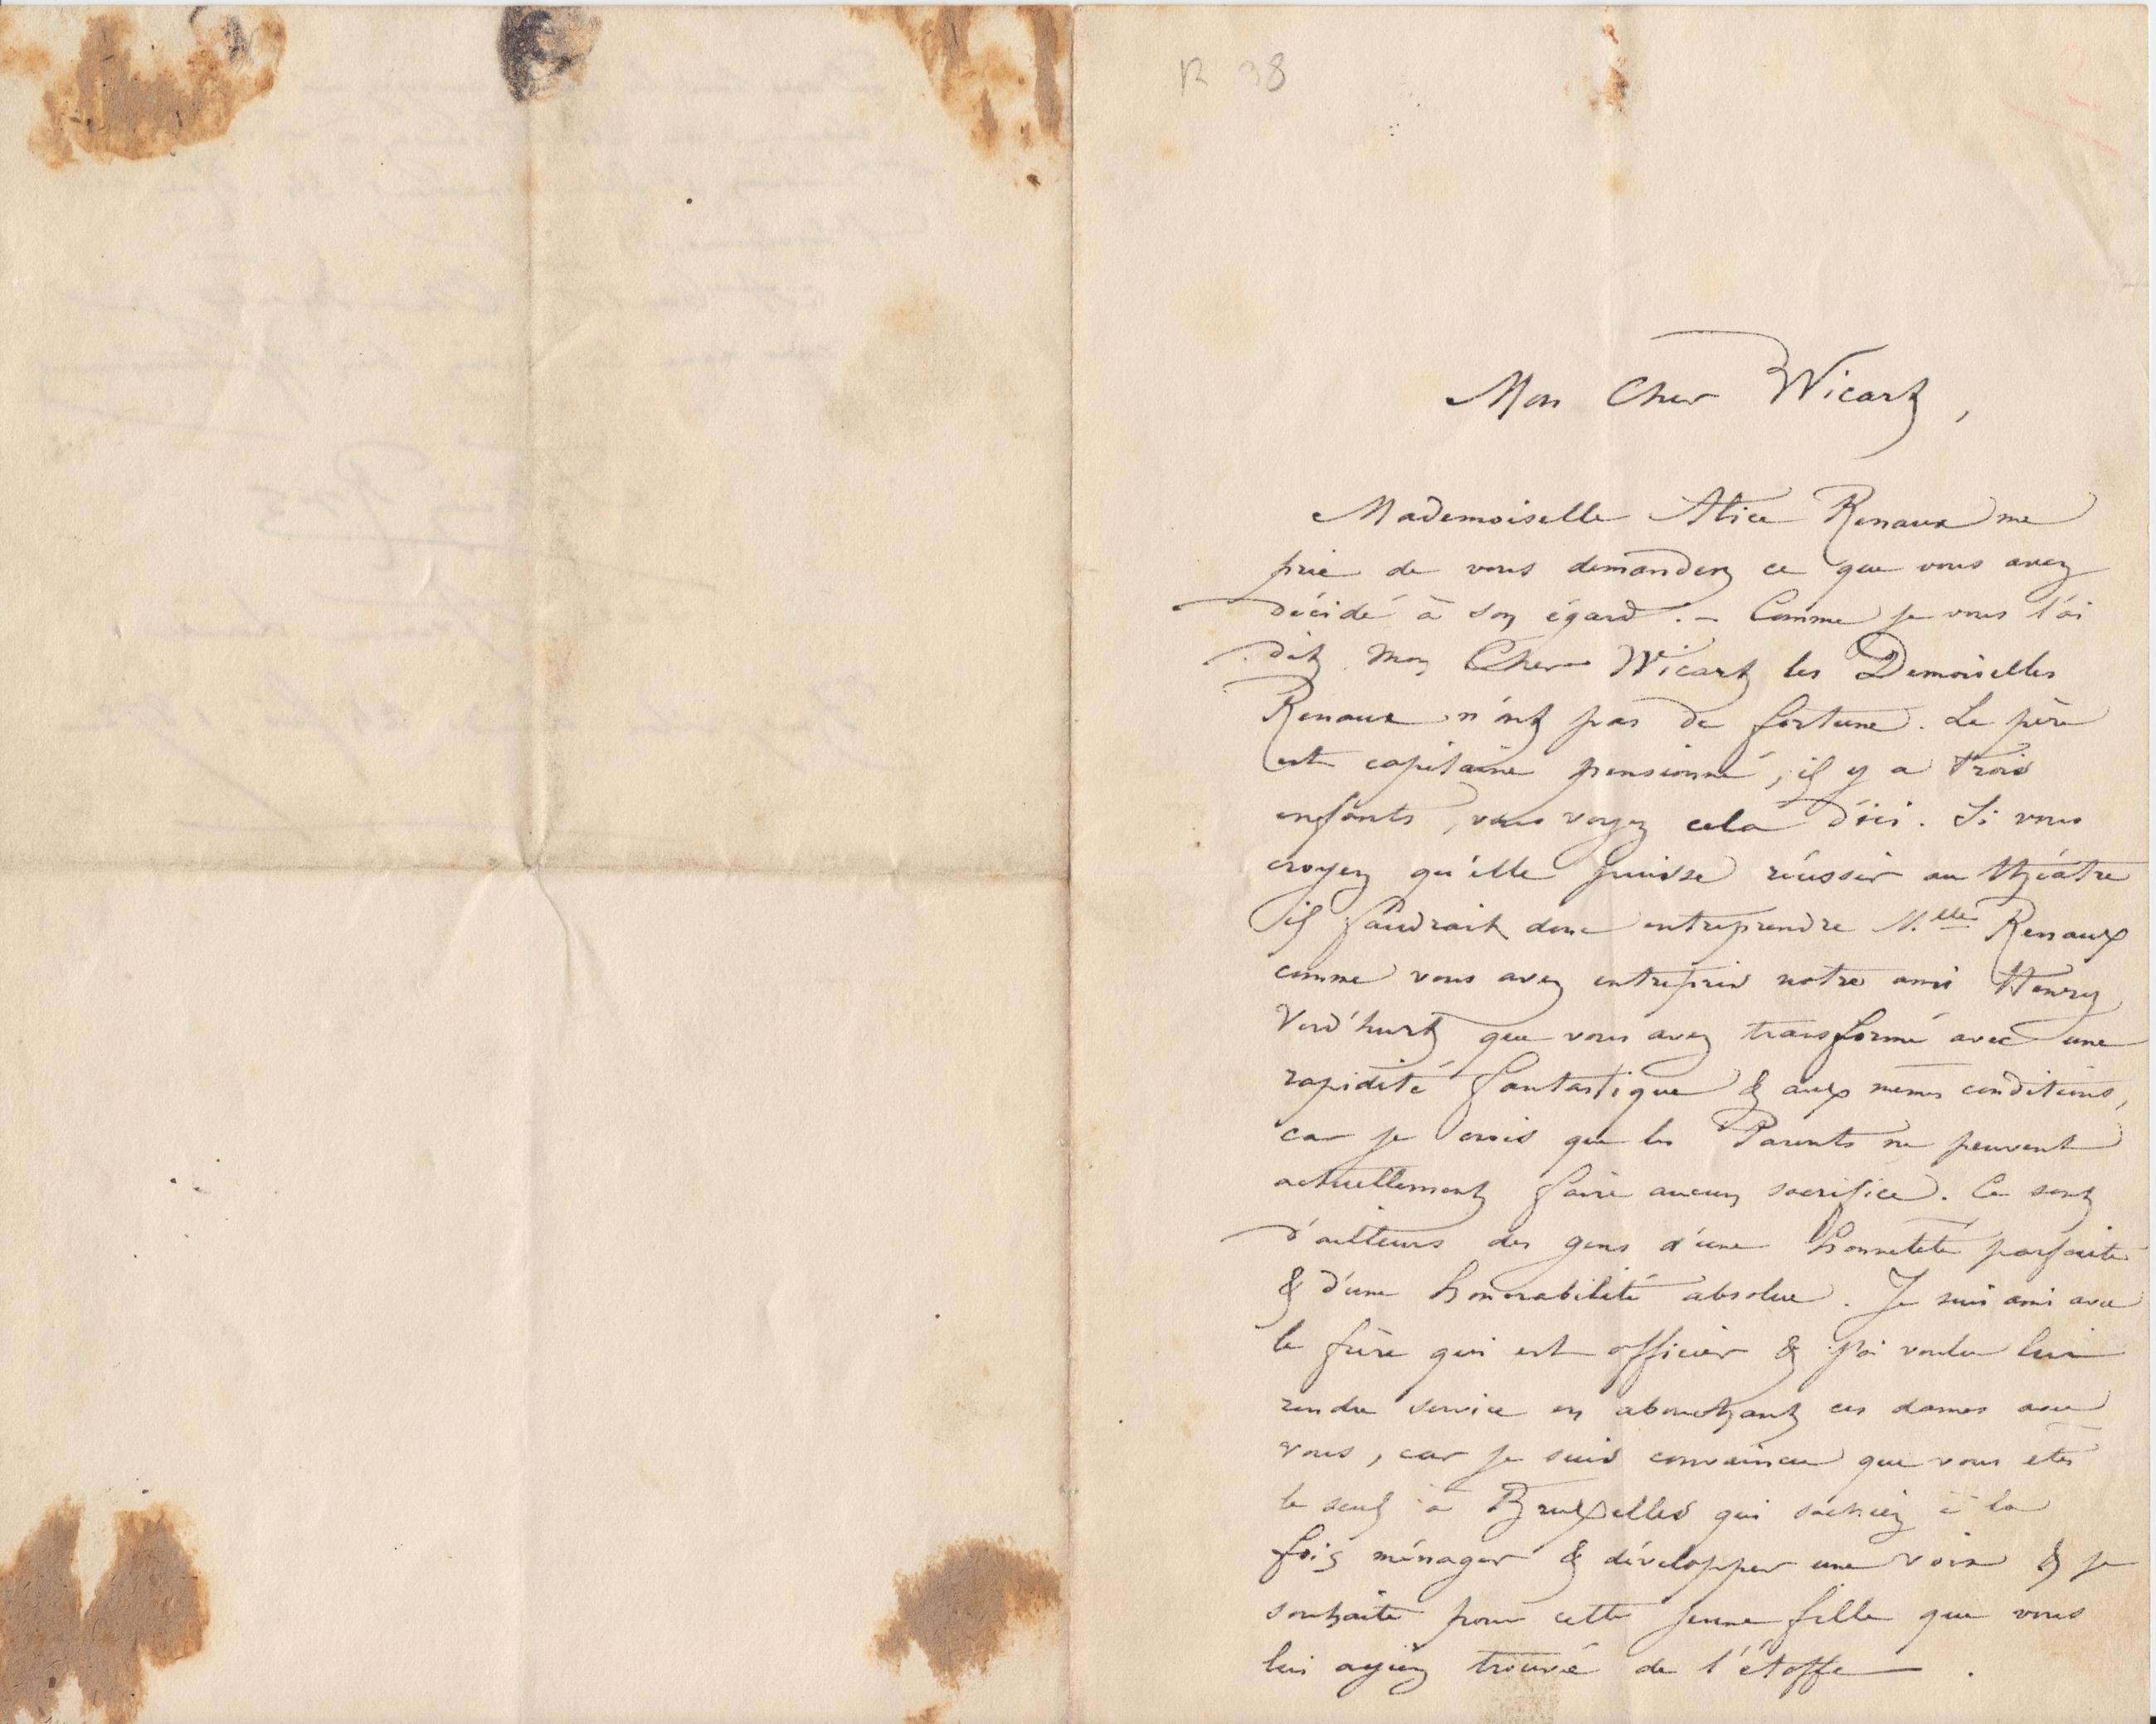 R 38
Mon Cher Wicart,
Mademoiselle Alice Renaux me
prie de vous demander ce que vous avez
décidé à son égard. – Comme je vous l'ai
dit mon Cher Wicart les Demoiselles
Renaux n'ont pas de fortune. Le père
est capitaine pensionné, il y a trois
enfants, vous voyez cela d'ici. Si vous
croyez qu'elle puisse réussir au théâtre
il faudrait donc entreprendre M.elle Renaux
comme vous avez entrepris notre ami Henry
Verd'hurt que vous avez transformé avec une
rapidité fantastique & aux memes conditions,
car je crois que les Parents ne peuvent
actuellement faire aucun sacrifice. Ce sont
d'ailleurs des gens d'une honnetété parfaite
& d'une honorabilité absolue. Je suis ami avec
le frère qui est officier & j'ai voulu lui
rendre service en abouchant ces dames avec
vous, car je suis convaincu que vous etes
le seul à Bruxelles qui sachiez à la
fois ménager & développer une voix & je
souhaite pour cette jeune fille que vous
lui ayiez trouvé de l'étoffe.